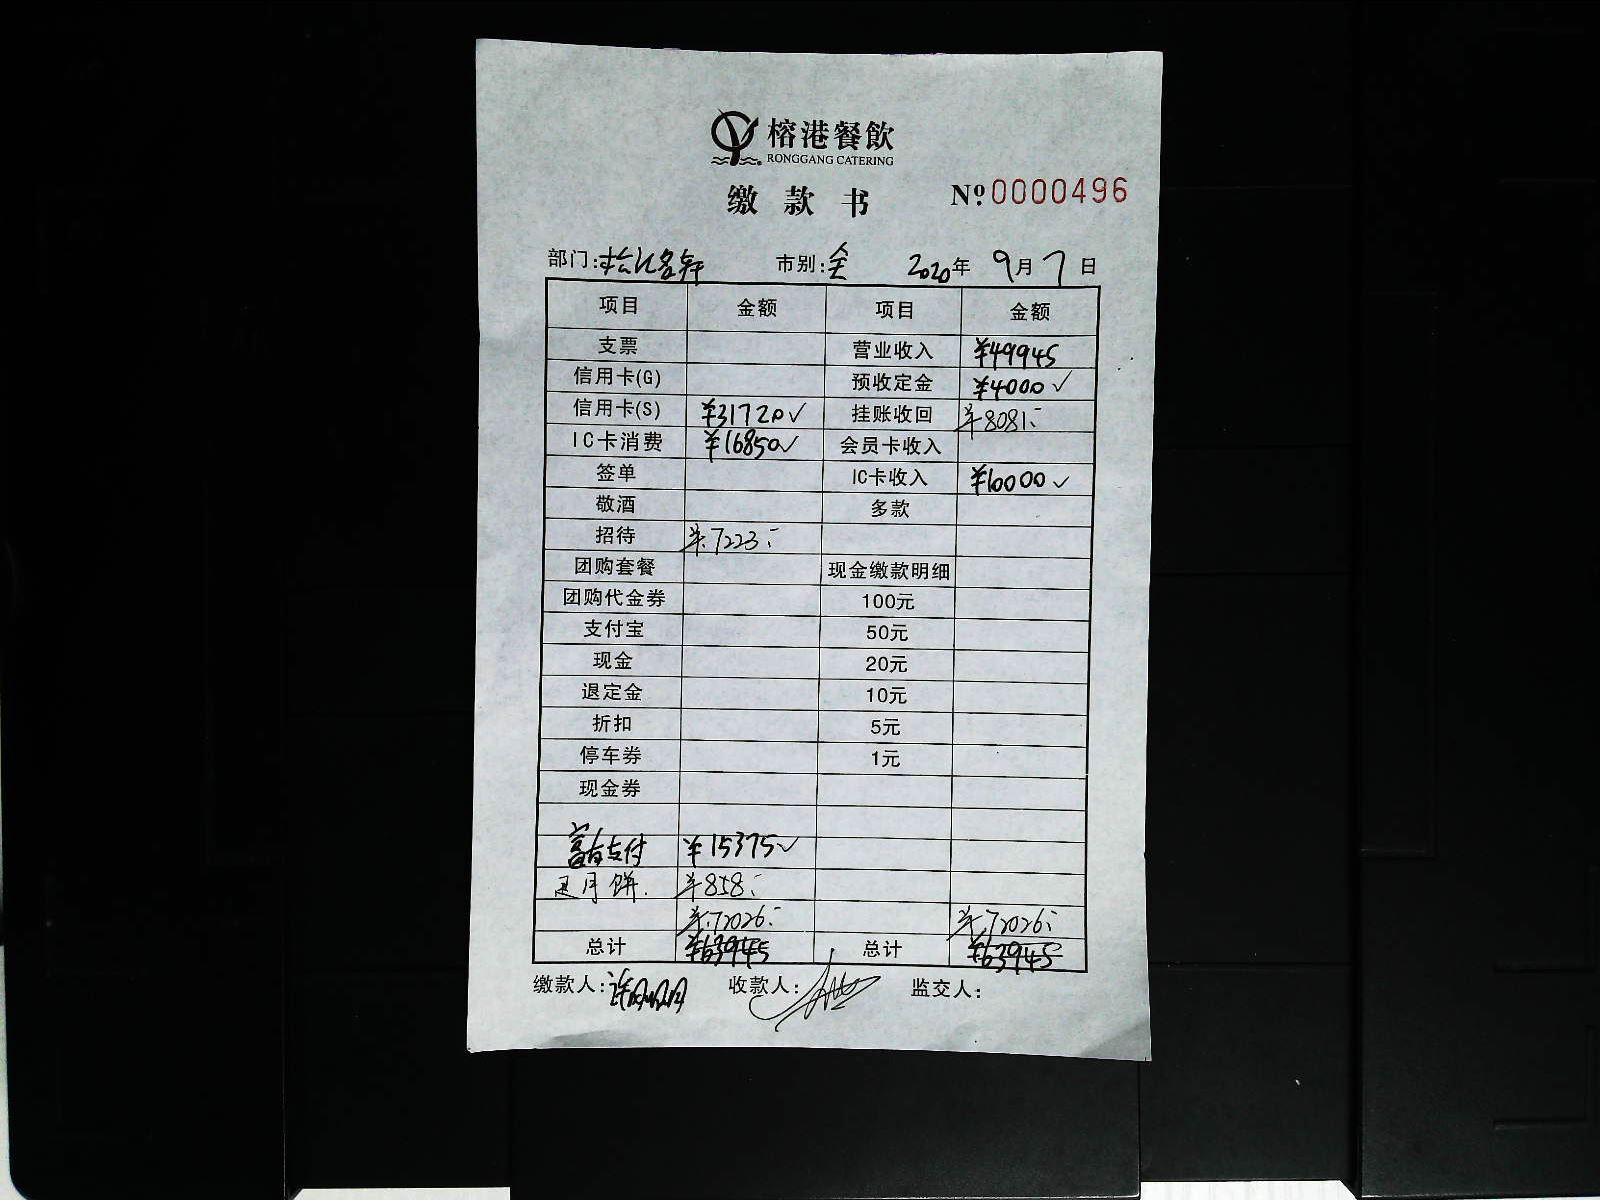 榕港餐飲
RONGGANG CATERING
缴款书
№:0000496
部门: 市别:全 2020年 9月7日
项目 金额 项目 金额
支票 营业收入 ¥49945
信用卡(G) 预收定金 ¥4000✓
信用卡(S) ¥31720✓ 挂账收回 ¥8081:
IC卡消费 ¥16850✓ 会员卡收入
签单 IC卡收入 ¥10000✓
敬酒 多款
招待 ¥.7223:
团购套餐 现金缴款明细
团购代金券 100元
支付宝 50元
现金 20元
退定金 10元
折扣 5元
停车券 1元
现金券
富有支付 ¥15375✓
月饼. ¥858:
¥.72026: ¥.72026:
总计 ¥63945 总计 ¥63945
缴款人: 收款人: 监交人: